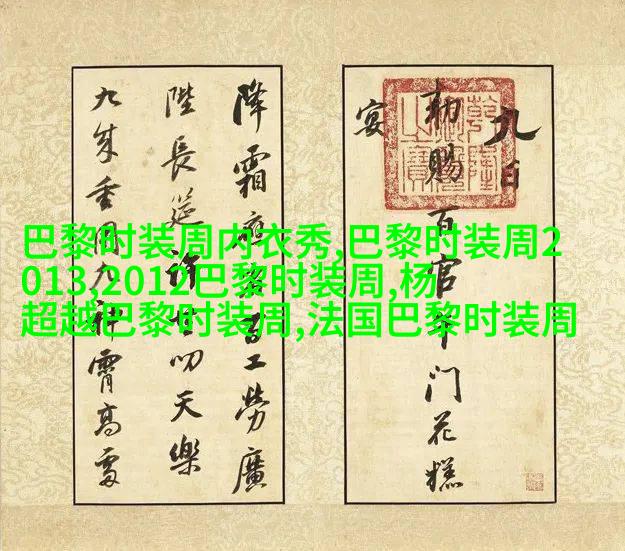 巴黎时装周内衣秀,巴黎时装周2
013,2012巴黎时装周,杨
超越巴黎时装周,法国巴黎时装周
九日
勅賜百官午門花糕
宴
降霜應百工勞廣
陛長筵叨天樂
九成重九神霄高